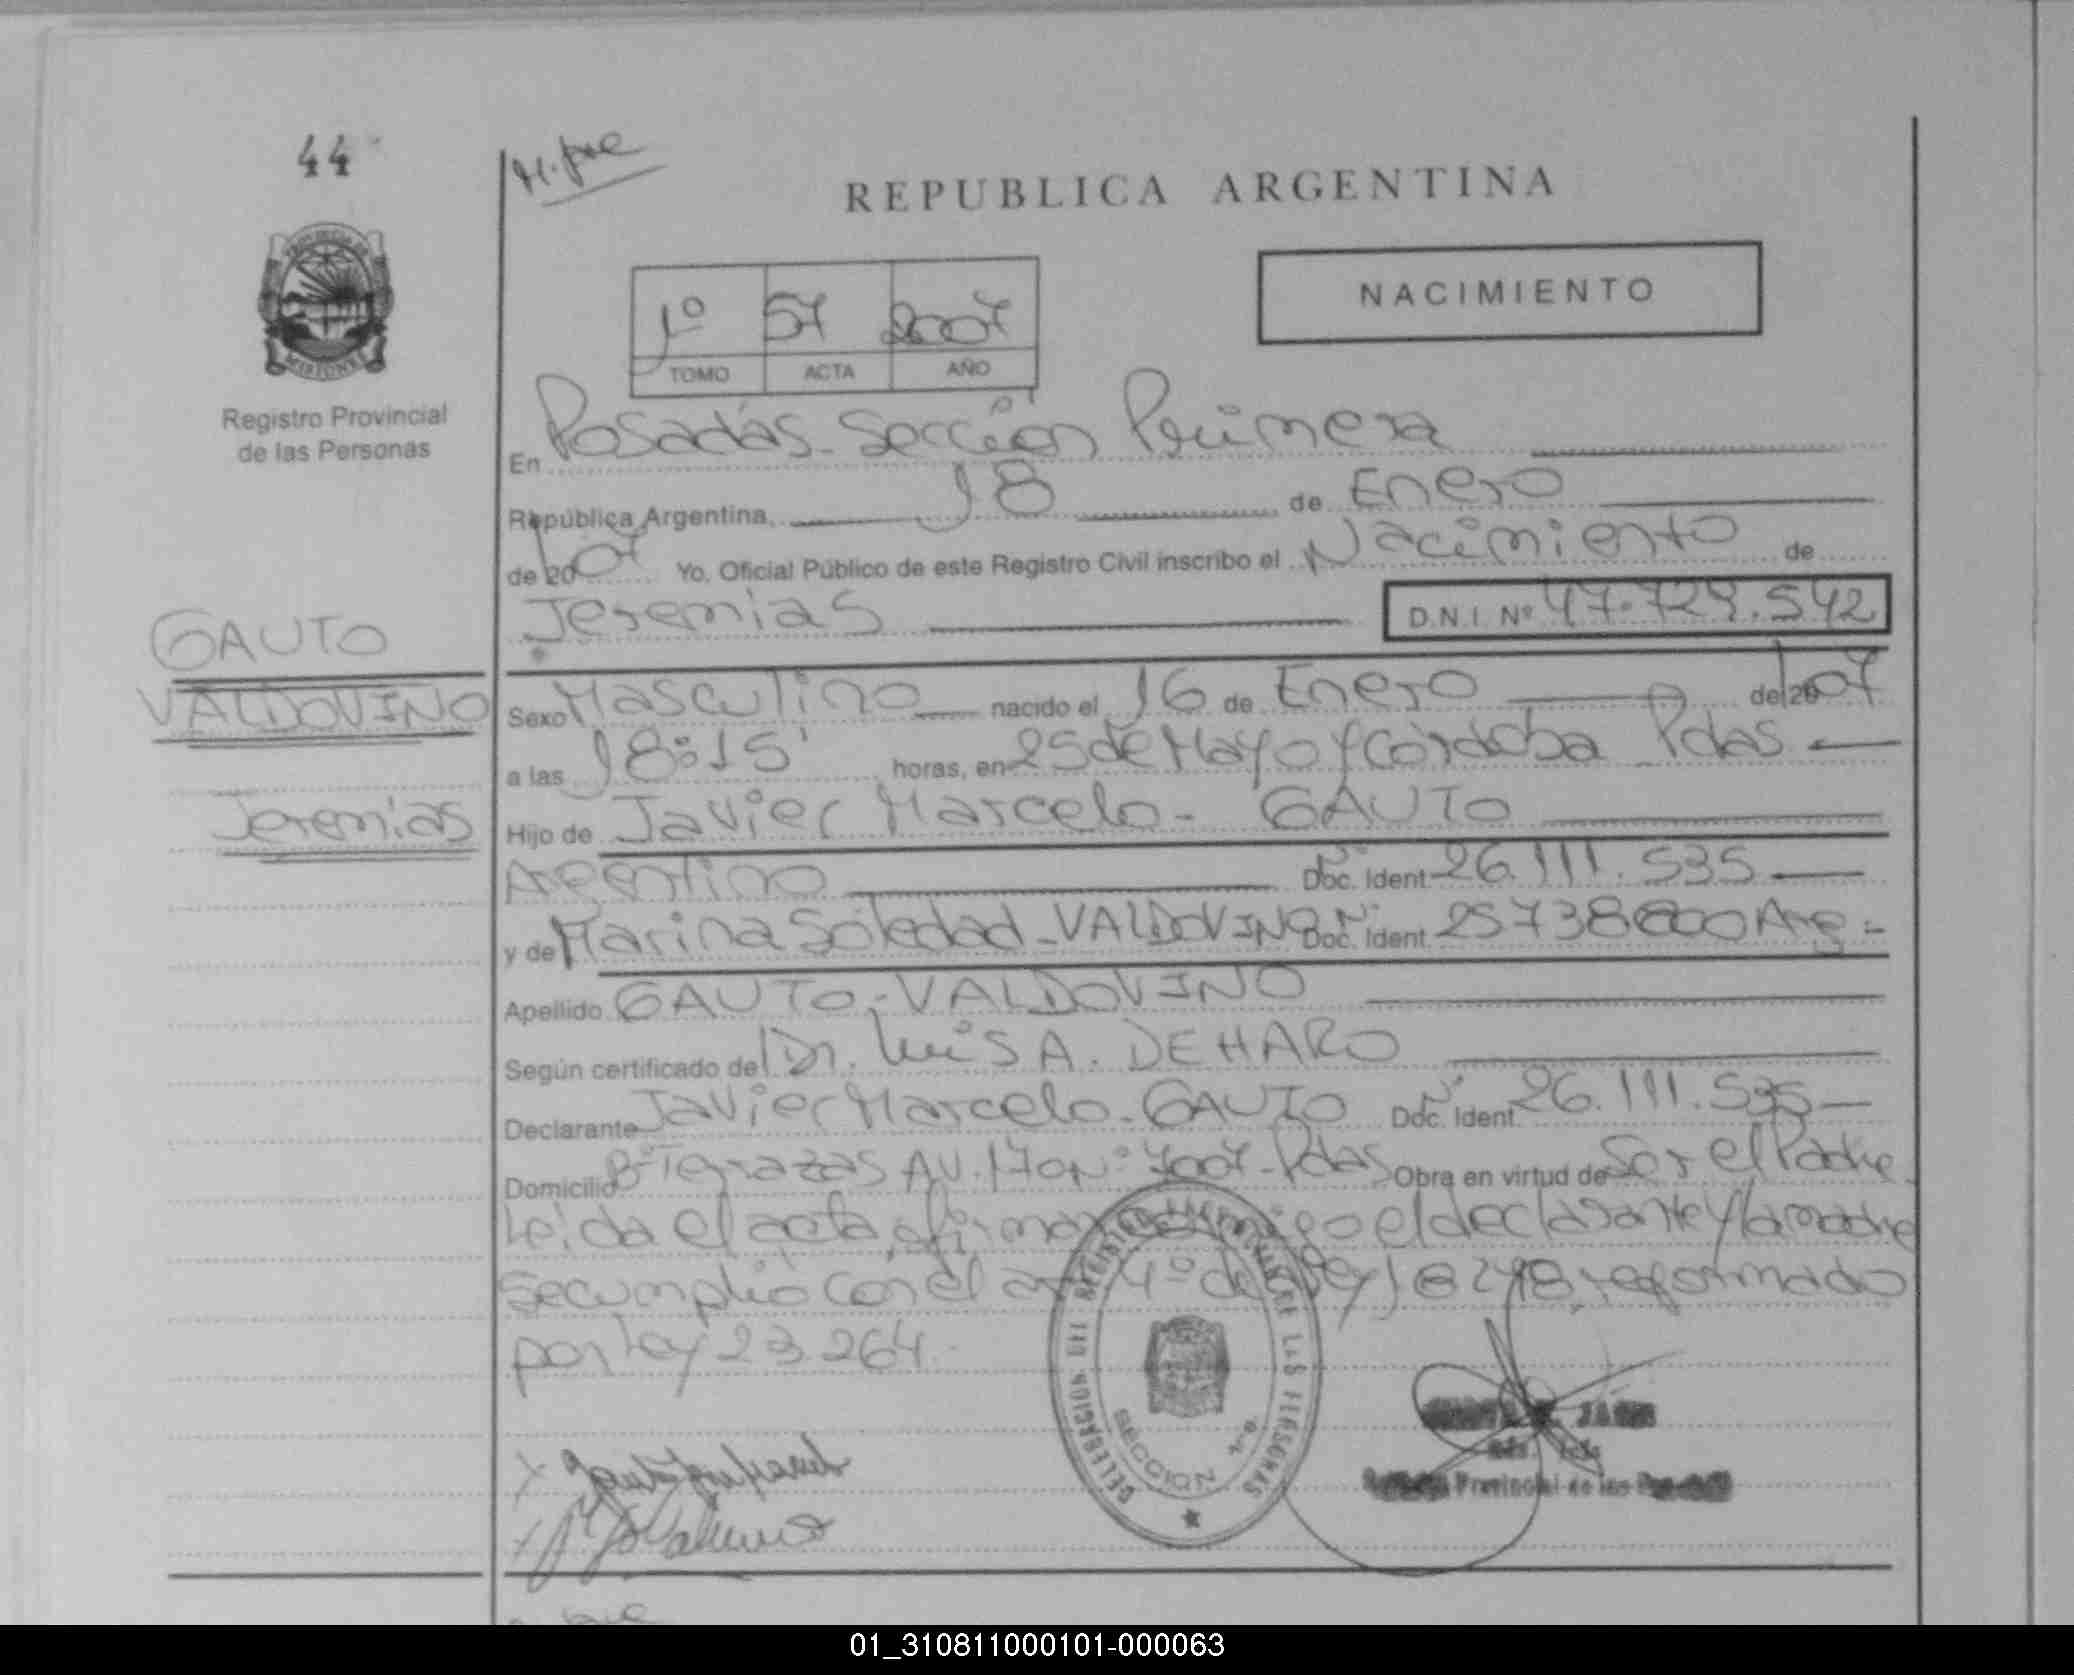 44
REPUBLICA ARGENTINA
NACIMIENTO
1º 57 2007
TOMO ACTA AÑO
Registro Provincial
de las Personas
En Posadas - Sección Primera
República Argentina, 18 de Enero
de 2007 Yo, Oficial Público de este Registro Civil inscribo el Nacimiento de
Jeremias D.N.I. Nº 47.729.542
GAUTO
VALDOVINO
Jeremias
Sexo Masculino nacido el 16 de Enero de 2007
a las 18:15' horas, en 25 de Mayo y Córdoba Pdas
Hijo de Javier Marcelo - GAUTO
Argentino Doc. Ident. Nº 26.111.535
y de Marina Soledad - VALDOVINO Doc. Ident. Nº 25738800 Arg -
Apellido GAUTO - VALDOVINO
Según certificado del Dr. Luis A. DEHARO
Declarante Javier Marcelo - GAUTO Doc. Ident. Nº 26.111.535
Domicilio Bº Terrazas AV. 170 Nº 7007 - Pdas Obra en virtud de Ser el Padre
Leída el acta, firman conmigo el declarante y la madre
Se cumplió con el art 4º de Ley 18248, reformado
por Ley 23.264.
DELEGACION DEL REGISTRO PROVINCIAL DE LAS PERSONAS
SECCION 1ra.
Provincial de las
01_310811000101-000063